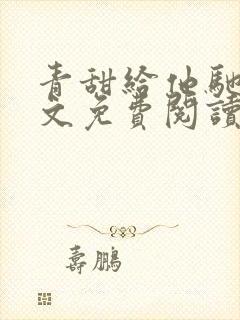 青甜給他馳
文免費閱讀
壽鵬